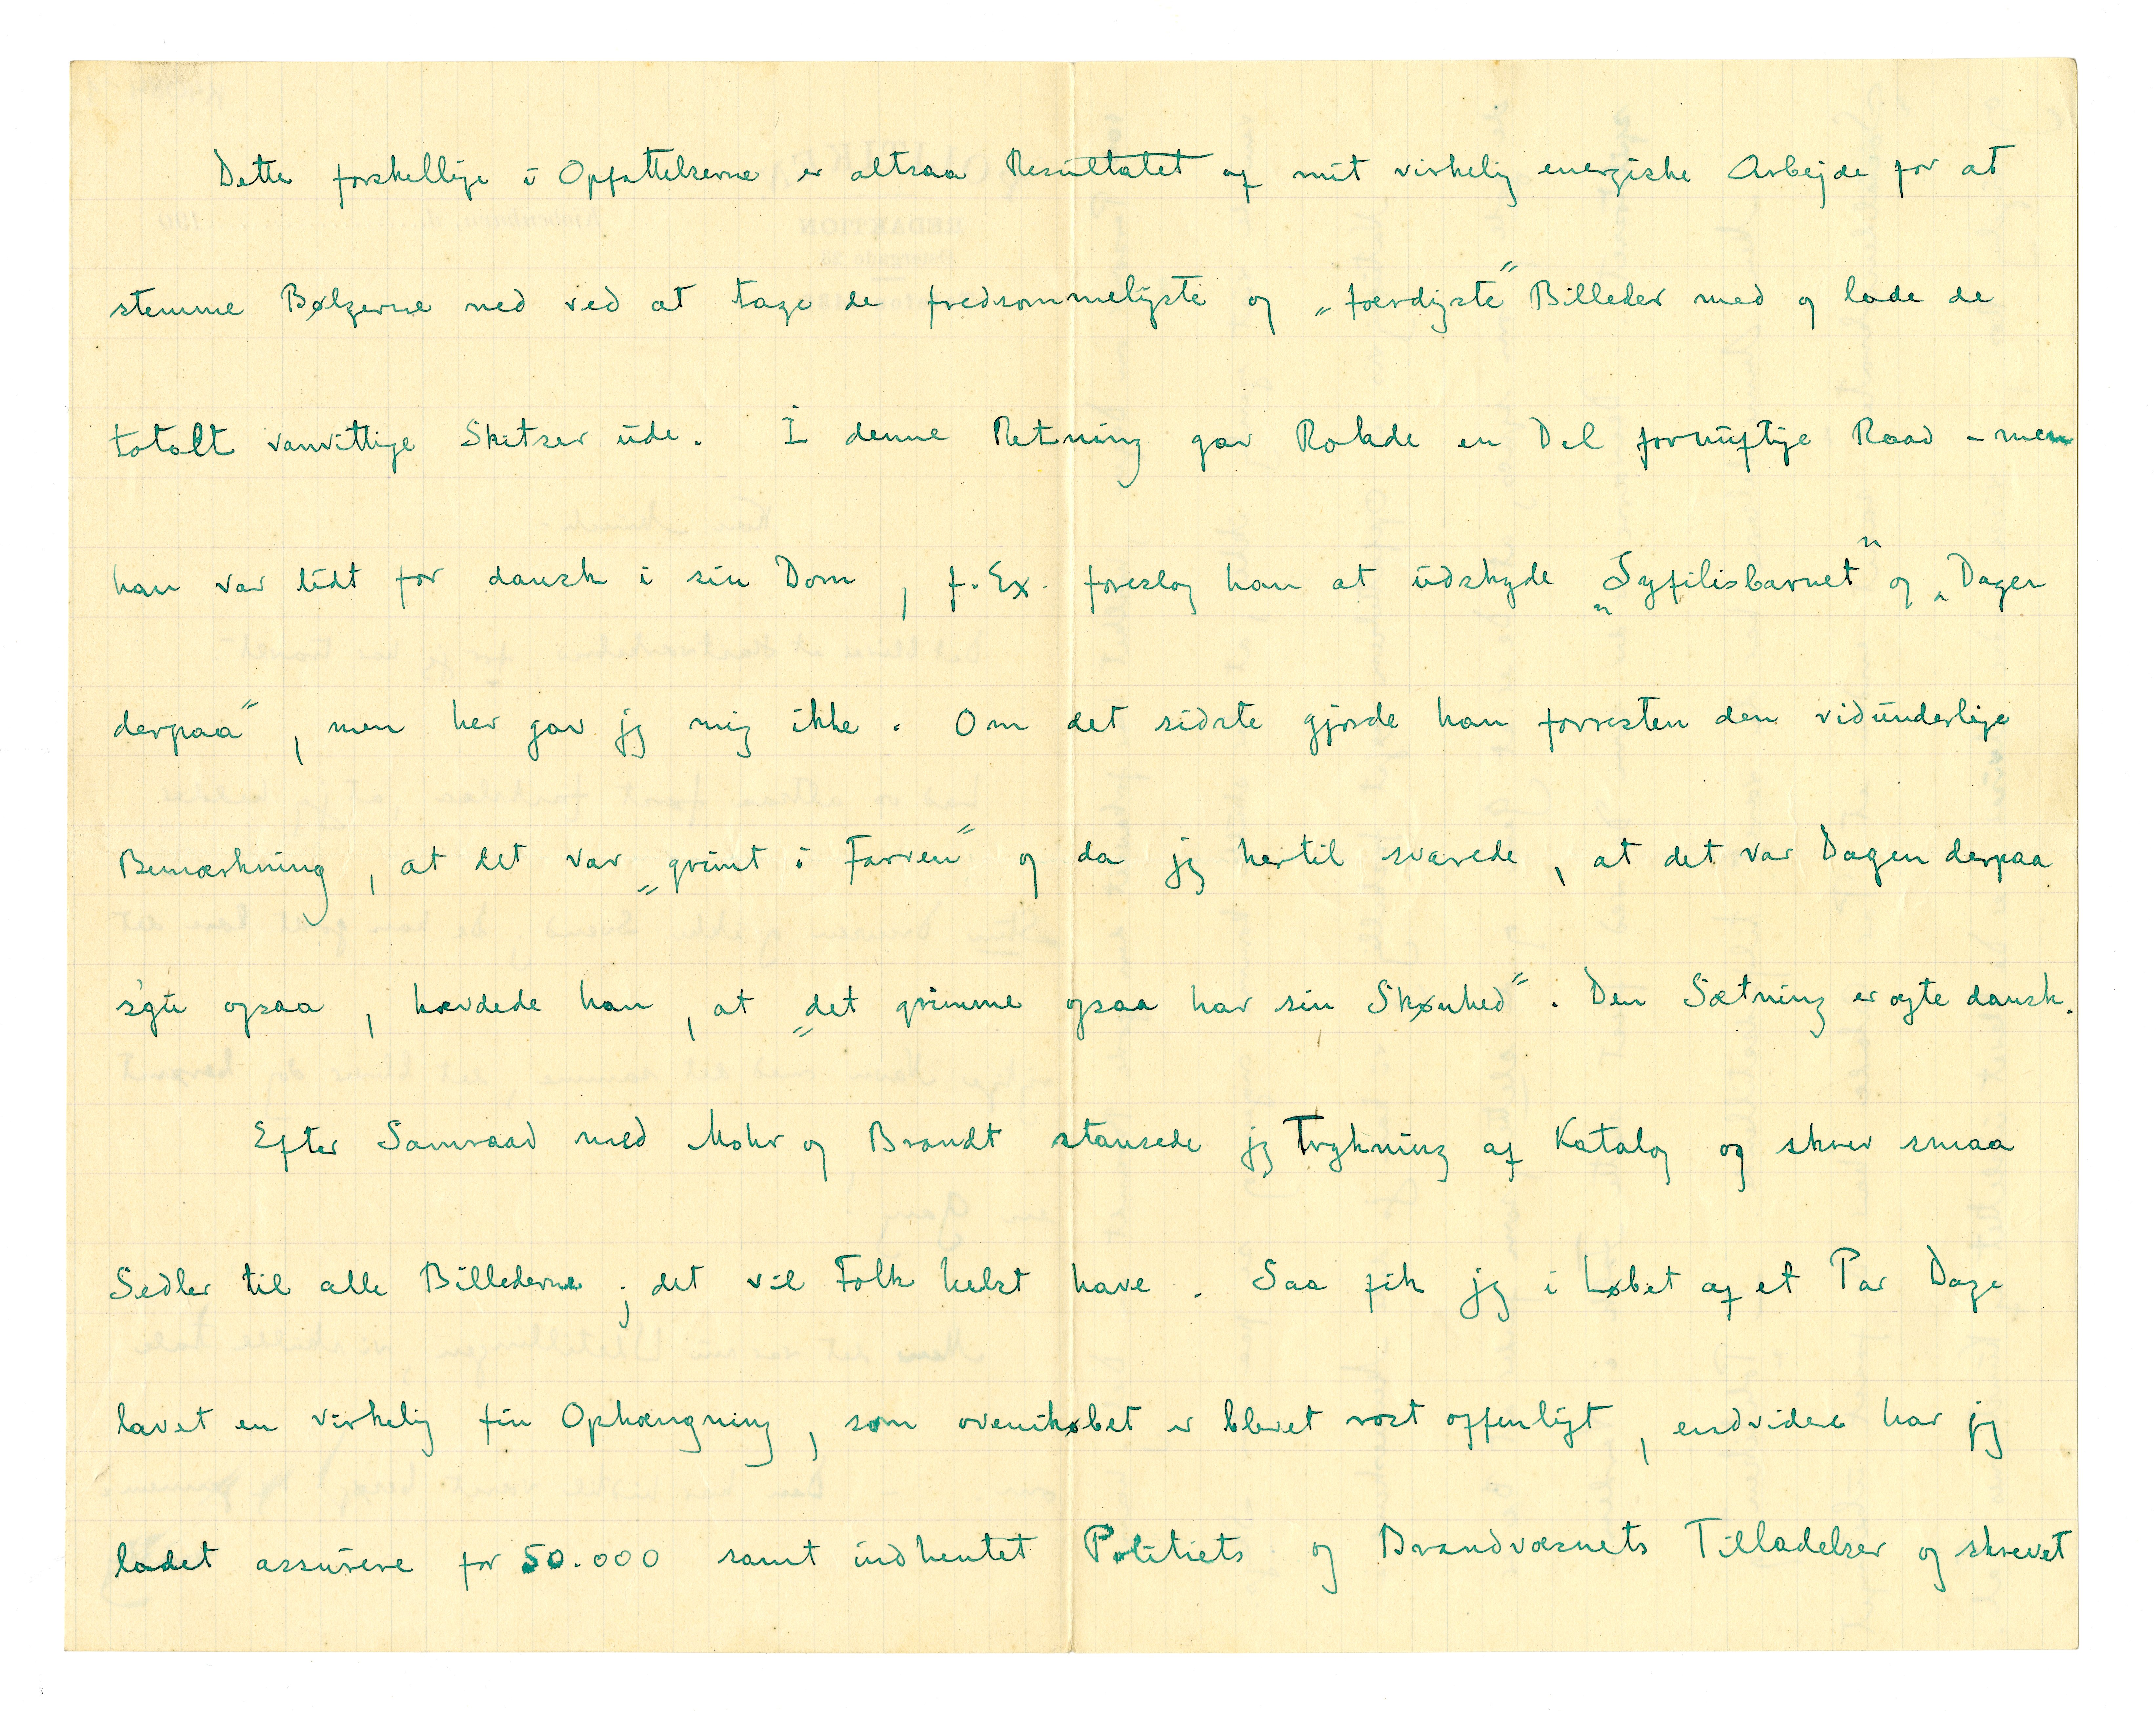 Dette forskellige i Opfattelserne er altsaa Resultatet af mit virkelig energiske Arbejde for at
stemme Bølgerne ned ved at tage de fredsommeligste og „færdigste” Billeder med og lade de
totalt vanvittige Skitser ude. I denne Retning gav Rohde en Del fornuftige Raad – men
han var lidt for dansk i sin Dom, f. Ex. foreslog han at udskyde „Syfilisbarnet” og „Dagen
derpaa”, men her gav jeg mig ikke. Om det sidste gjorde han forresten den vidunderlige
Bemærkning, at det var „grimt i Farven” og da jeg hertil svarede, at det var Dagen derpaa
s'gu ogsaa, hævdede han, at „det grimme ogsaa har sin Skønhed”. Den Sætning er ægte dansk.
Efter Samraad med Mohr og Brandt stansede jeg Trykning af Katalog og skrev smaa
Sedler til alle Billederne; det vil Folk helst have. Saa fik jeg i Løbet af et Par Dage
lavet en virkelig fin Ophængning, som ovenikøbet er blevet rost offenligt, endvidere har jeg
ladet assurere for 50.000 samt indhentet Politiets og Brandvæsnets Tilladelser og skrevet